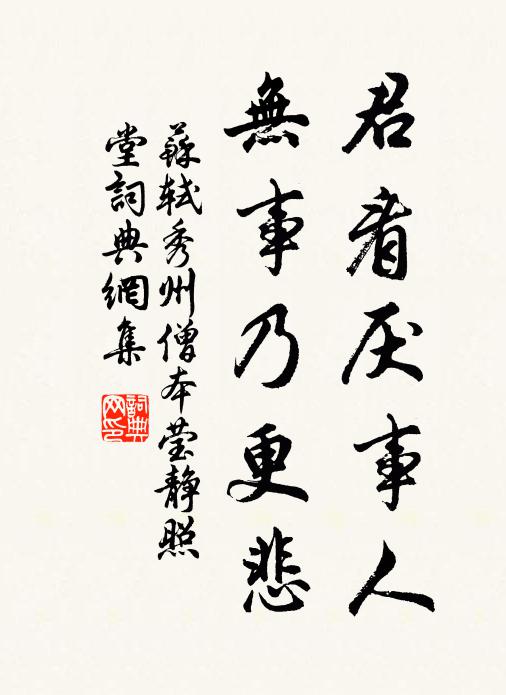 君看厌事人
無事乃更悲
蘇軾秀州僧本莹靜照
堂詞典網集
詞典
网印